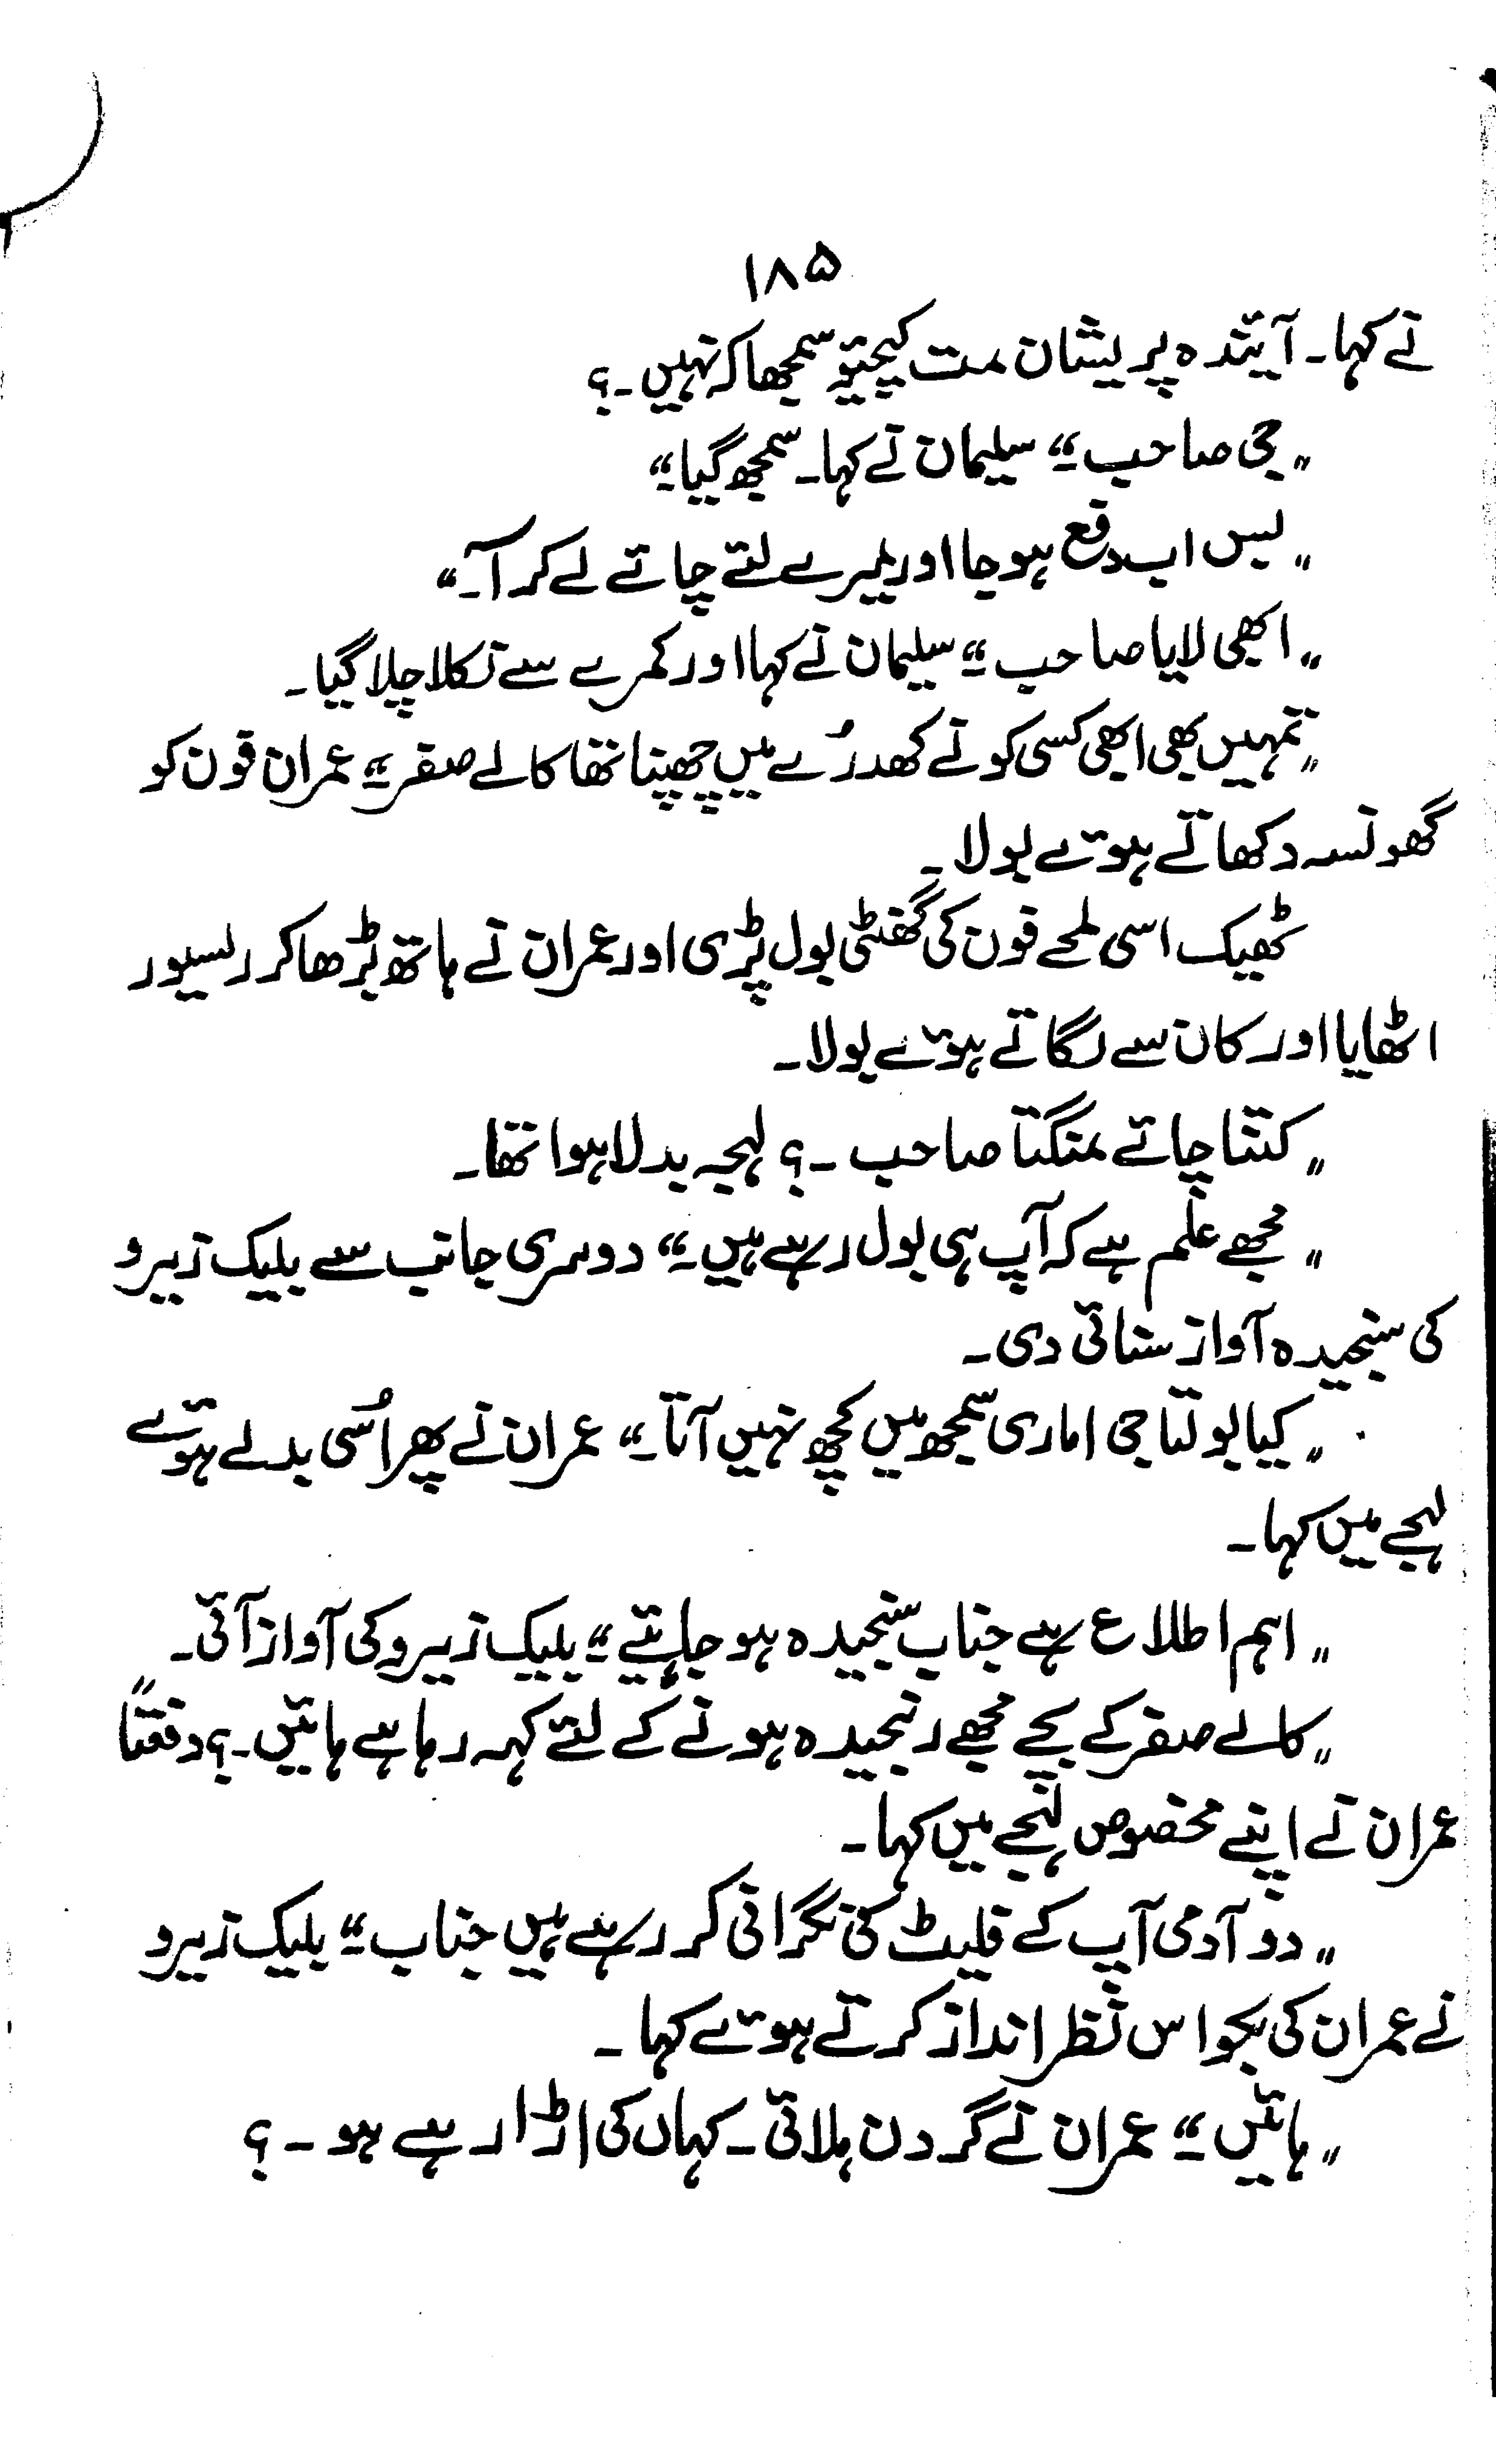 ۱۸۵
نے کہا۔ آیندہ پریشان مت کیجیئو سمجھا کہ نہیں۔؟
"جی صاحب۔" سلیمان نے کہا۔ سمجھ گیا۔"
"بس اب دفع ہو جا اور میرے لئے چائے لے کر آ۔"
"ابھی لایا صاحب۔" سلیمان نے کہا اور کمرے سے نکلا چلا گیا۔
"تمہیں بھی ابھی کسی کونے کھدرُے میں چھپنا تھا کالے صفر۔" عمران فون کو
گھونسہ دکھاتے ہوئے بولا۔
ٹھیک اسی لمحے فون کی گھنٹی بول پڑی اور عمران نے ہاتھ بڑھا کر رلسیور
اٹھایا اور کان سے لگاتے ہوئے بولا۔
"کتنا چائے منگتا صاحب ۔؟ لہجہ بدلا ہوا تھا۔
"مجھے علم ہے کہ آپ ہی بول رہے ہیں۔" دوسری جانب سے بلیک زیرو
کی سنجیدہ آواز سنائی دی۔
"کیا بولتا جی اماری سمجھ میں کچھ نہیں آتا۔" عمران نے پھر اُسی بدلے ہوئے
لہجے میں کہا۔
"اہم اطلاع ہے جناب سنجیدہ ہو جایئے۔" بلیک زیرو کی آواز آئی۔
"کالے صفر کے بچے مجھے رنجیدہ ہونے کے لئے کہہ رہا ہے ہائیں۔؟" دفعتاً
عمران نے اپنے مخصوص لہجے میں کہا۔
"دو آدمی آپ کے فلیٹ کی نگرانی کر رہے ہیں جناب۔" بلیک زیرو
نے عمران کی بکواس نظر انداز کرتے ہوئے کہا۔
"ہائیں۔" عمران نے گردن ہلائی۔ کہاں کی اڑا رہے ہو۔؟